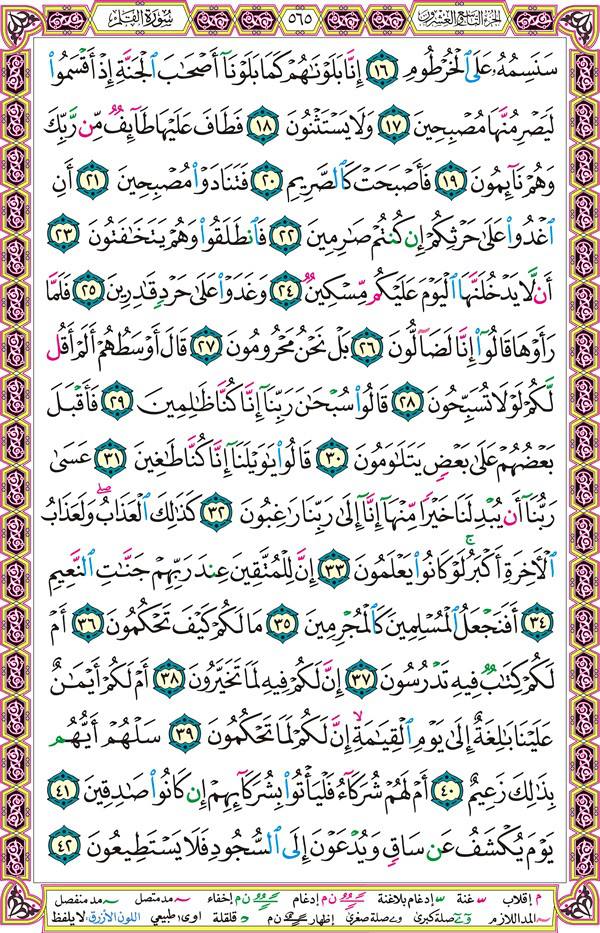 الجزء التاسع والعشرون ٥٦٥ سورة القلم
سَنَسِمُهُۥ عَلَى ٱلْخُرْطُومِ ١٦ إِنَّا بَلَوْنَٰهُمْ كَمَا بَلَوْنَآ أَصْحَٰبَ ٱلْجَنَّةِ إِذْ أَقْسَمُوا۟
لَيَصْرِمُنَّهَا مُصْبِحِينَ ١٧ وَلَا يَسْتَثْنُونَ ١٨ فَطَافَ عَلَيْهَا طَآئِفٌ مِّن رَّبِّكَ
وَهُمْ نَآئِمُونَ ١٩ فَأَصْبَحَتْ كَٱلصَّرِيمِ ٢٠ فَتَنَادَوْا۟ مُصْبِحِينَ ٢١ أَنِ
ٱغْدُوا۟ عَلَىٰ حَرْثِكُمْ إِن كُنتُمْ صَٰرِمِينَ ٢٢ فَٱنطَلَقُوا۟ وَهُمْ يَتَخَٰفَتُونَ ٢٣
أَن لَّا يَدْخُلَنَّهَا ٱلْيَوْمَ عَلَيْكُم مِّسْكِينٌ ٢٤ وَغَدَوْا۟ عَلَىٰ حَرْدٍ قَٰدِرِينَ ٢٥ فَلَمَّا
رَأَوْهَا قَالُوٓا۟ إِنَّا لَضَآلُّونَ ٢٦ بَلْ نَحْنُ مَحْرُومُونَ ٢٧ قَالَ أَوْسَطُهُمْ أَلَمْ أَقُل
لَّكُمْ لَوْلَا تُسَبِّحُونَ ٢٨ قَالُوا۟ سُبْحَٰنَ رَبِّنَآ إِنَّا كُنَّا ظَٰلِمِينَ ٢٩ فَأَقْبَلَ
بَعْضُهُمْ عَلَىٰ بَعْضٍ يَتَلَٰوَمُونَ ٣٠ قَالُوا۟ يَٰوَيْلَنَآ إِنَّا كُنَّا طَٰغِينَ ٣١ عَسَىٰ
رَبُّنَآ أَن يُبْدِلَنَا خَيْرًا مِّنْهَآ إِنَّآ إِلَىٰ رَبِّنَا رَٰغِبُونَ ٣٢ كَذَٰلِكَ ٱلْعَذَابُ ۖ وَلَعَذَابُ
ٱلْءَاخِرَةِ أَكْبَرُ ۚ لَوْ كَانُوا۟ يَعْلَمُونَ ٣٣ إِنَّ لِلْمُتَّقِينَ عِندَ رَبِّهِمْ جَنَّٰتِ ٱلنَّعِيمِ
٣٤ أَفَنَجْعَلُ ٱلْمُسْلِمِينَ كَٱلْمُجْرِمِينَ ٣٥ مَا لَكُمْ كَيْفَ تَحْكُمُونَ ٣٦ أَمْ
لَكُمْ كِتَٰبٌ فِيهِ تَدْرُسُونَ ٣٧ إِنَّ لَكُمْ فِيهِ لَمَا تَخَيَّرُونَ ٣٨ أَمْ لَكُمْ أَيْمَٰنٌ
عَلَيْنَا بَٰلِغَةٌ إِلَىٰ يَوْمِ ٱلْقِيَٰمَةِ ۙ إِنَّ لَكُمْ لَمَا تَحْكُمُونَ ٣٩ سَلْهُمْ أَيُّهُم
بِذَٰلِكَ زَعِيمٌ ٤٠ أَمْ لَهُمْ شُرَكَآءُ فَلْيَأْتُوا۟ بِشُرَكَآئِهِمْ إِن كَانُوا۟ صَٰدِقِينَ ٤١
يَوْمَ يُكْشَفُ عَن سَاقٍ وَيُدْعَوْنَ إِلَى ٱلسُّجُودِ فَلَا يَسْتَطِيعُونَ ٤٢
م إقلاب غنة إدغام بلاغنة ن م إدغام ن م إخفاء مد متصل مد منفصل
المد اللازم صلة كبرى صلة صغرى إظهار ن م قلقلة اوى؛ طبيعي اللون الأزرق: لا يلفظ